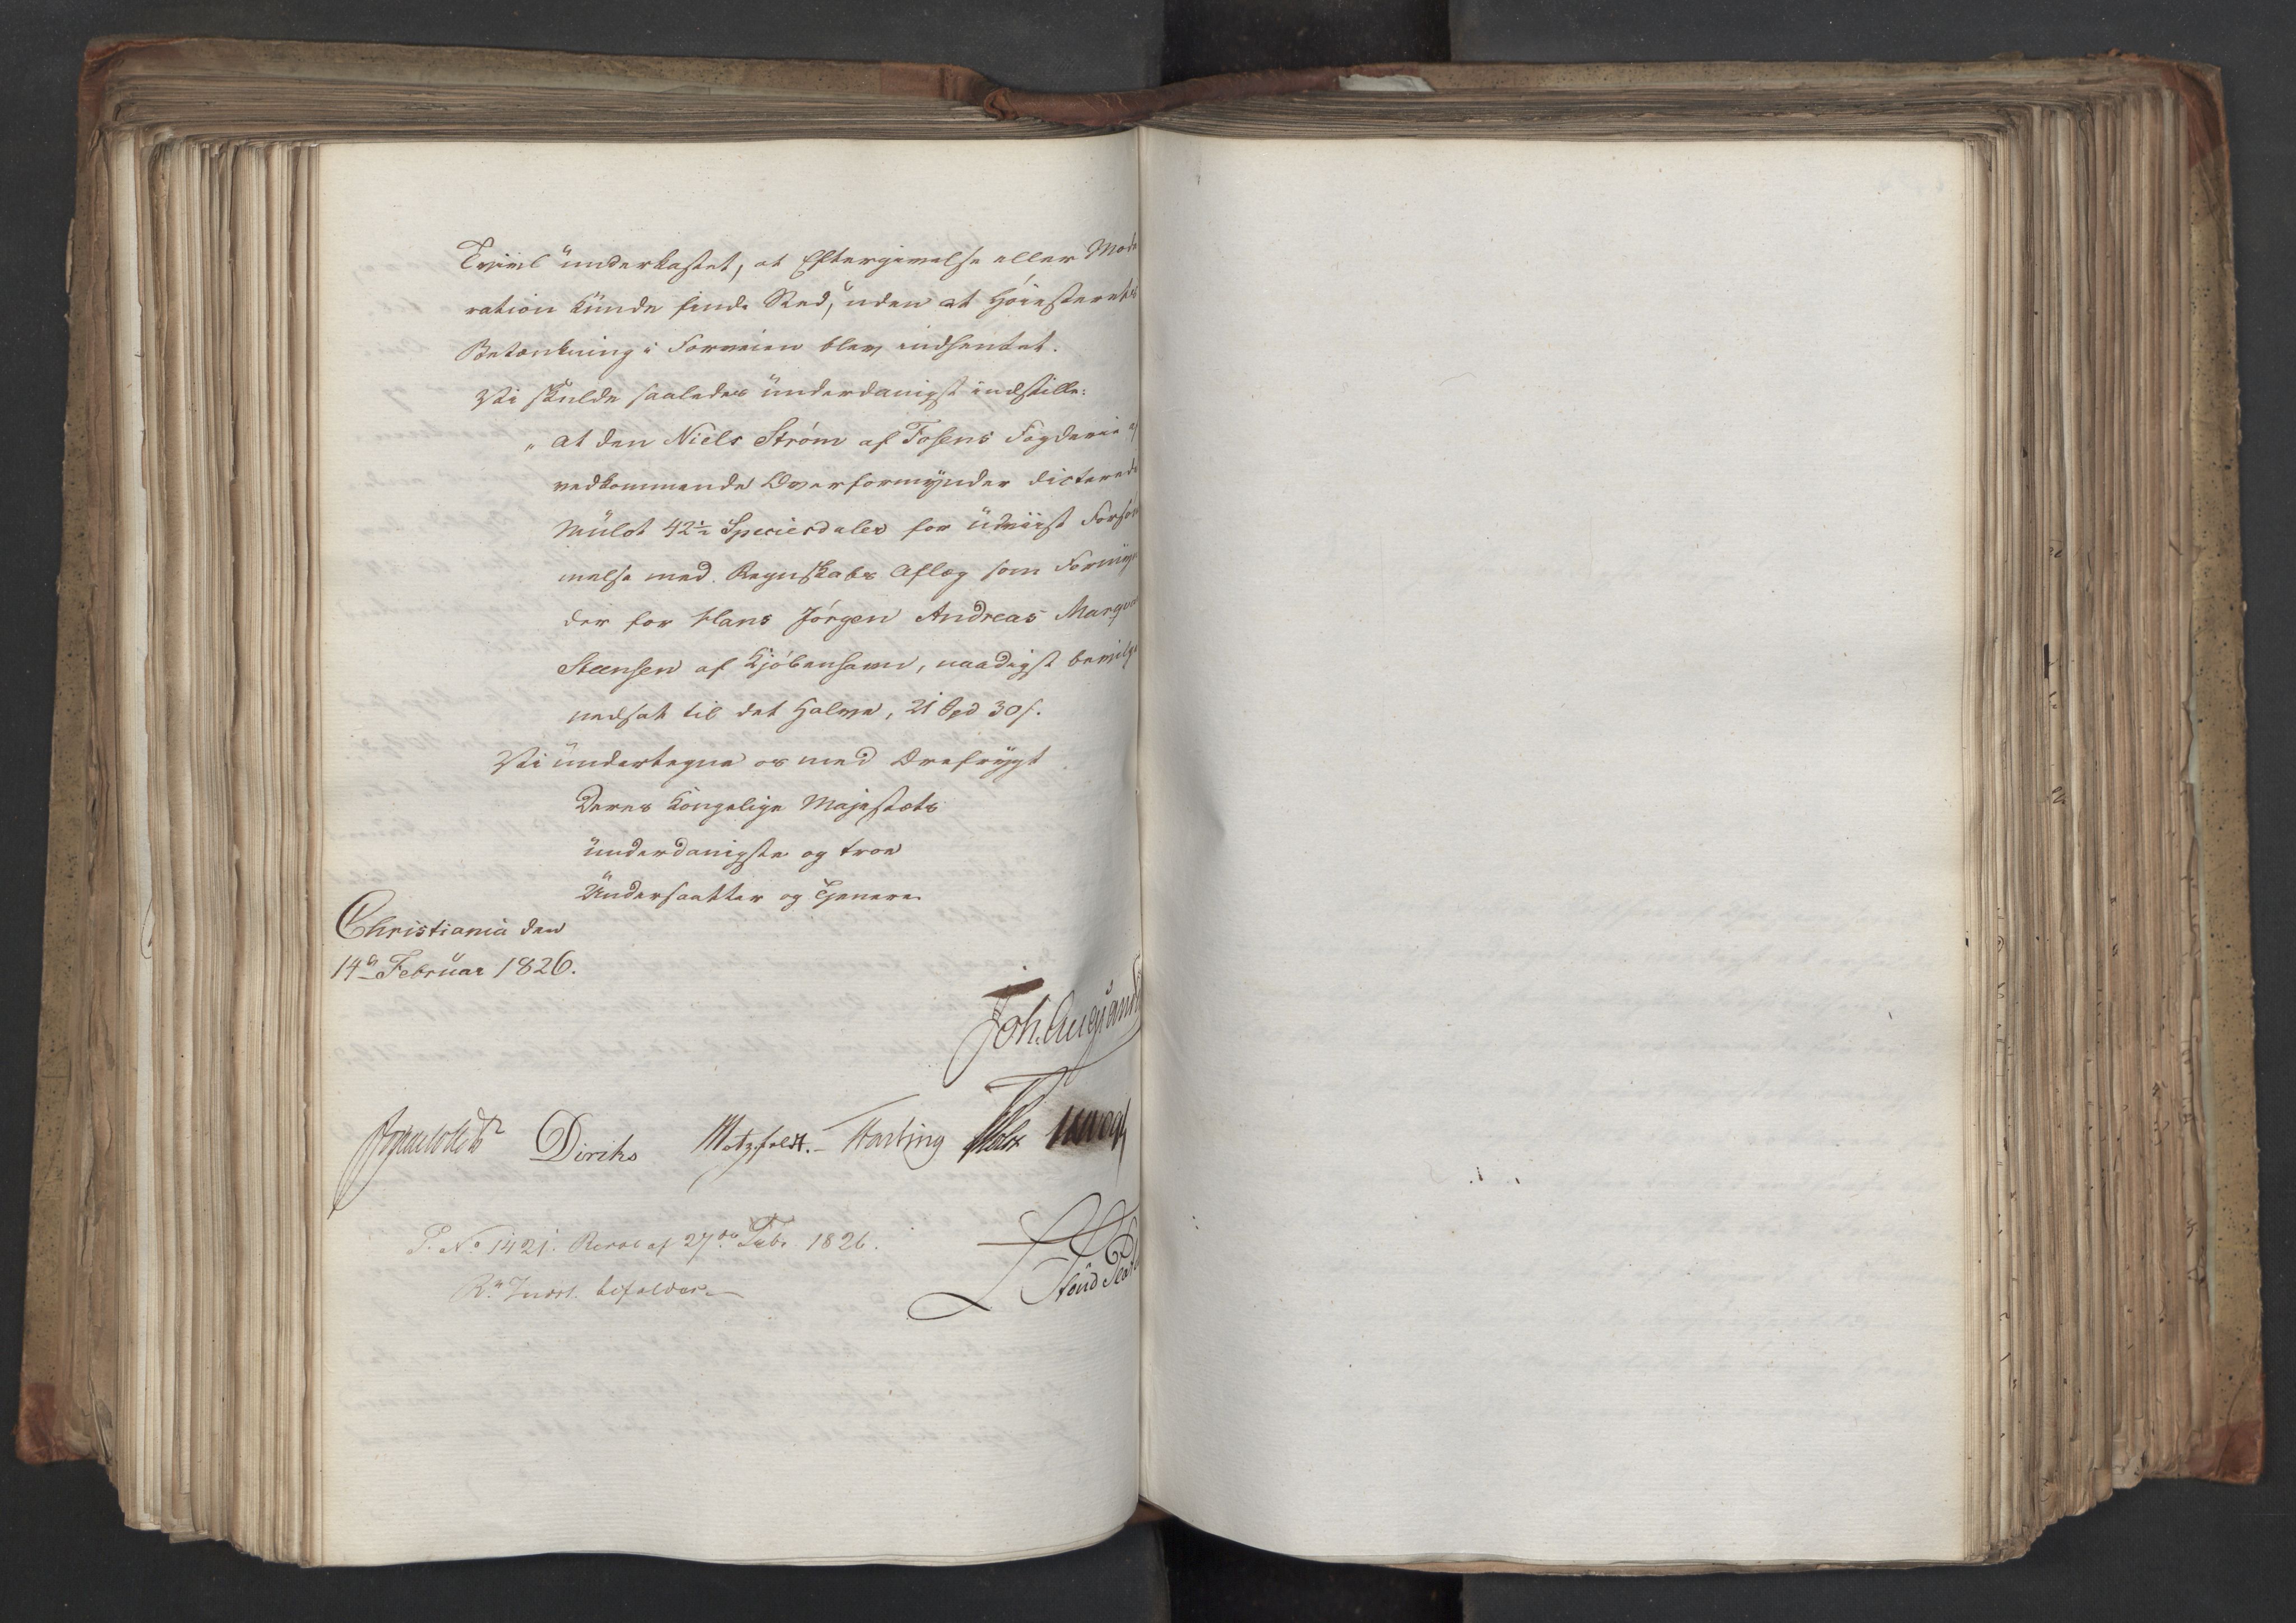 Tvivl underkastet, at Eftergivelse eller Mode
ration kunde finde Sted, uden at Höiesterets
Betænkning i Forveien blev indhentet.
Vi skulde saaledes underdanigst indstille:
„at den Niels Ström af Fosens Fogderie af
vedkommende Overformynder dicterede
Mulct 42½ Speciesdaler for udviist Forsöm
melse med Regnskabs Aflæg som Formyn
der for Hans Jörgen Andreas
Steensen af Kjöbenhavn, naadigst bevilges
nedsat til det Halve, 21 Spd 30 s.
Vi undertegne os med Ærefrygt
Deres Kongelige Majestæts
underdanigste og troe
Undersaatter og Tjenere
Christiania den
14de Februar 1826.
Joh. Aug. Sandels
Diriks Motzfeldt. Harting Holst
P. No 1421. Resol. af 27de Febr. 1826.
Rn Indst. bifaldes